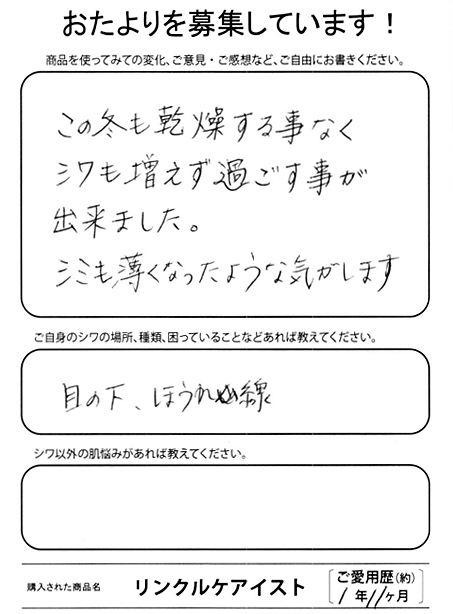 おたよりを募集しています！
商品を使ってみての変化、ご意見・ご感想など、ご自由にお書きください。
この冬も乾燥する事なく
シワも増えず過ごす事が
出来ました。
シミも薄くなったような気がします
ご自身のシワの場所、種類、困っていることなどあれば教えてください。
目の下、ほうれい線
シワ以外の肌悩みがあれば教えてください。
購入された商品名 リンクルケアイスト ご愛用歴(約)
1年11ヶ月